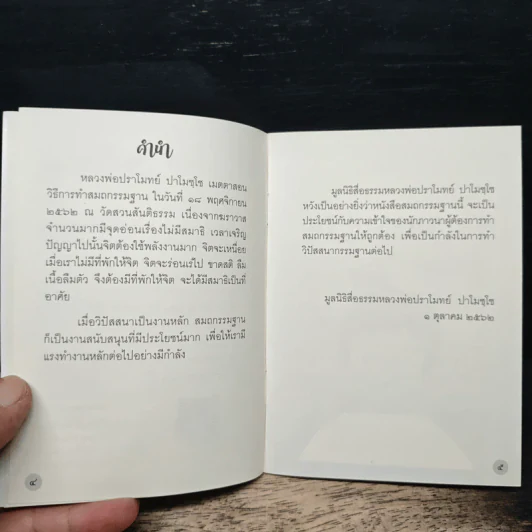 คำนำ
หลวงพ่อปราโมทย์ ปาโมชฺโช เมตตาสอน
วิธีการทำสมถกรรมฐาน ในวันที่ ๑๘ พฤศจิกายน
๒๕๖๒ ณ วัดสวนสันติธรรม เนื่องจากฆราวาส
จำนวนมากมีจุดอ่อนเรื่องไม่มีสมาธิ เวลาเจริญ
ปัญญาไปนั้นจิตต้องใช้พลังงานมาก จิตจะเหนื่อย
เมื่อเราไม่มีที่พักให้จิต จิตจะร่อนเร่ไป ขาดสติ ลืม
เนื้อลืมตัว จึงต้องมีที่พักให้จิต จะได้มีสมาธิเป็นที่
อาศัย
เมื่อวิปัสสนาเป็นงานหลัก สมถกรรมฐาน
ก็เป็นงานสนับสนุนที่มีประโยชน์มาก เพื่อให้เรามี
แรงทำงานหลักต่อไปอย่างมีกำลัง
๔
มูลนิธิสื่อธรรมหลวงพ่อปราโมทย์ ปาโมชฺโช
หวังเป็นอย่างยิ่งว่าหนังสือสมถกรรมฐานนี้ จะเป็น
ประโยชน์กับความเข้าใจของนักภาวนาผู้ต้องการทำ
สมถกรรมฐานให้ถูกต้อง เพื่อเป็นกำลังในการทำ
วิปัสสนากรรมฐานต่อไป
มูลนิธิสื่อธรรมหลวงพ่อปราโมทย์ ปาโมชฺโช
๑ ตุลาคม ๒๕๖๒
๕